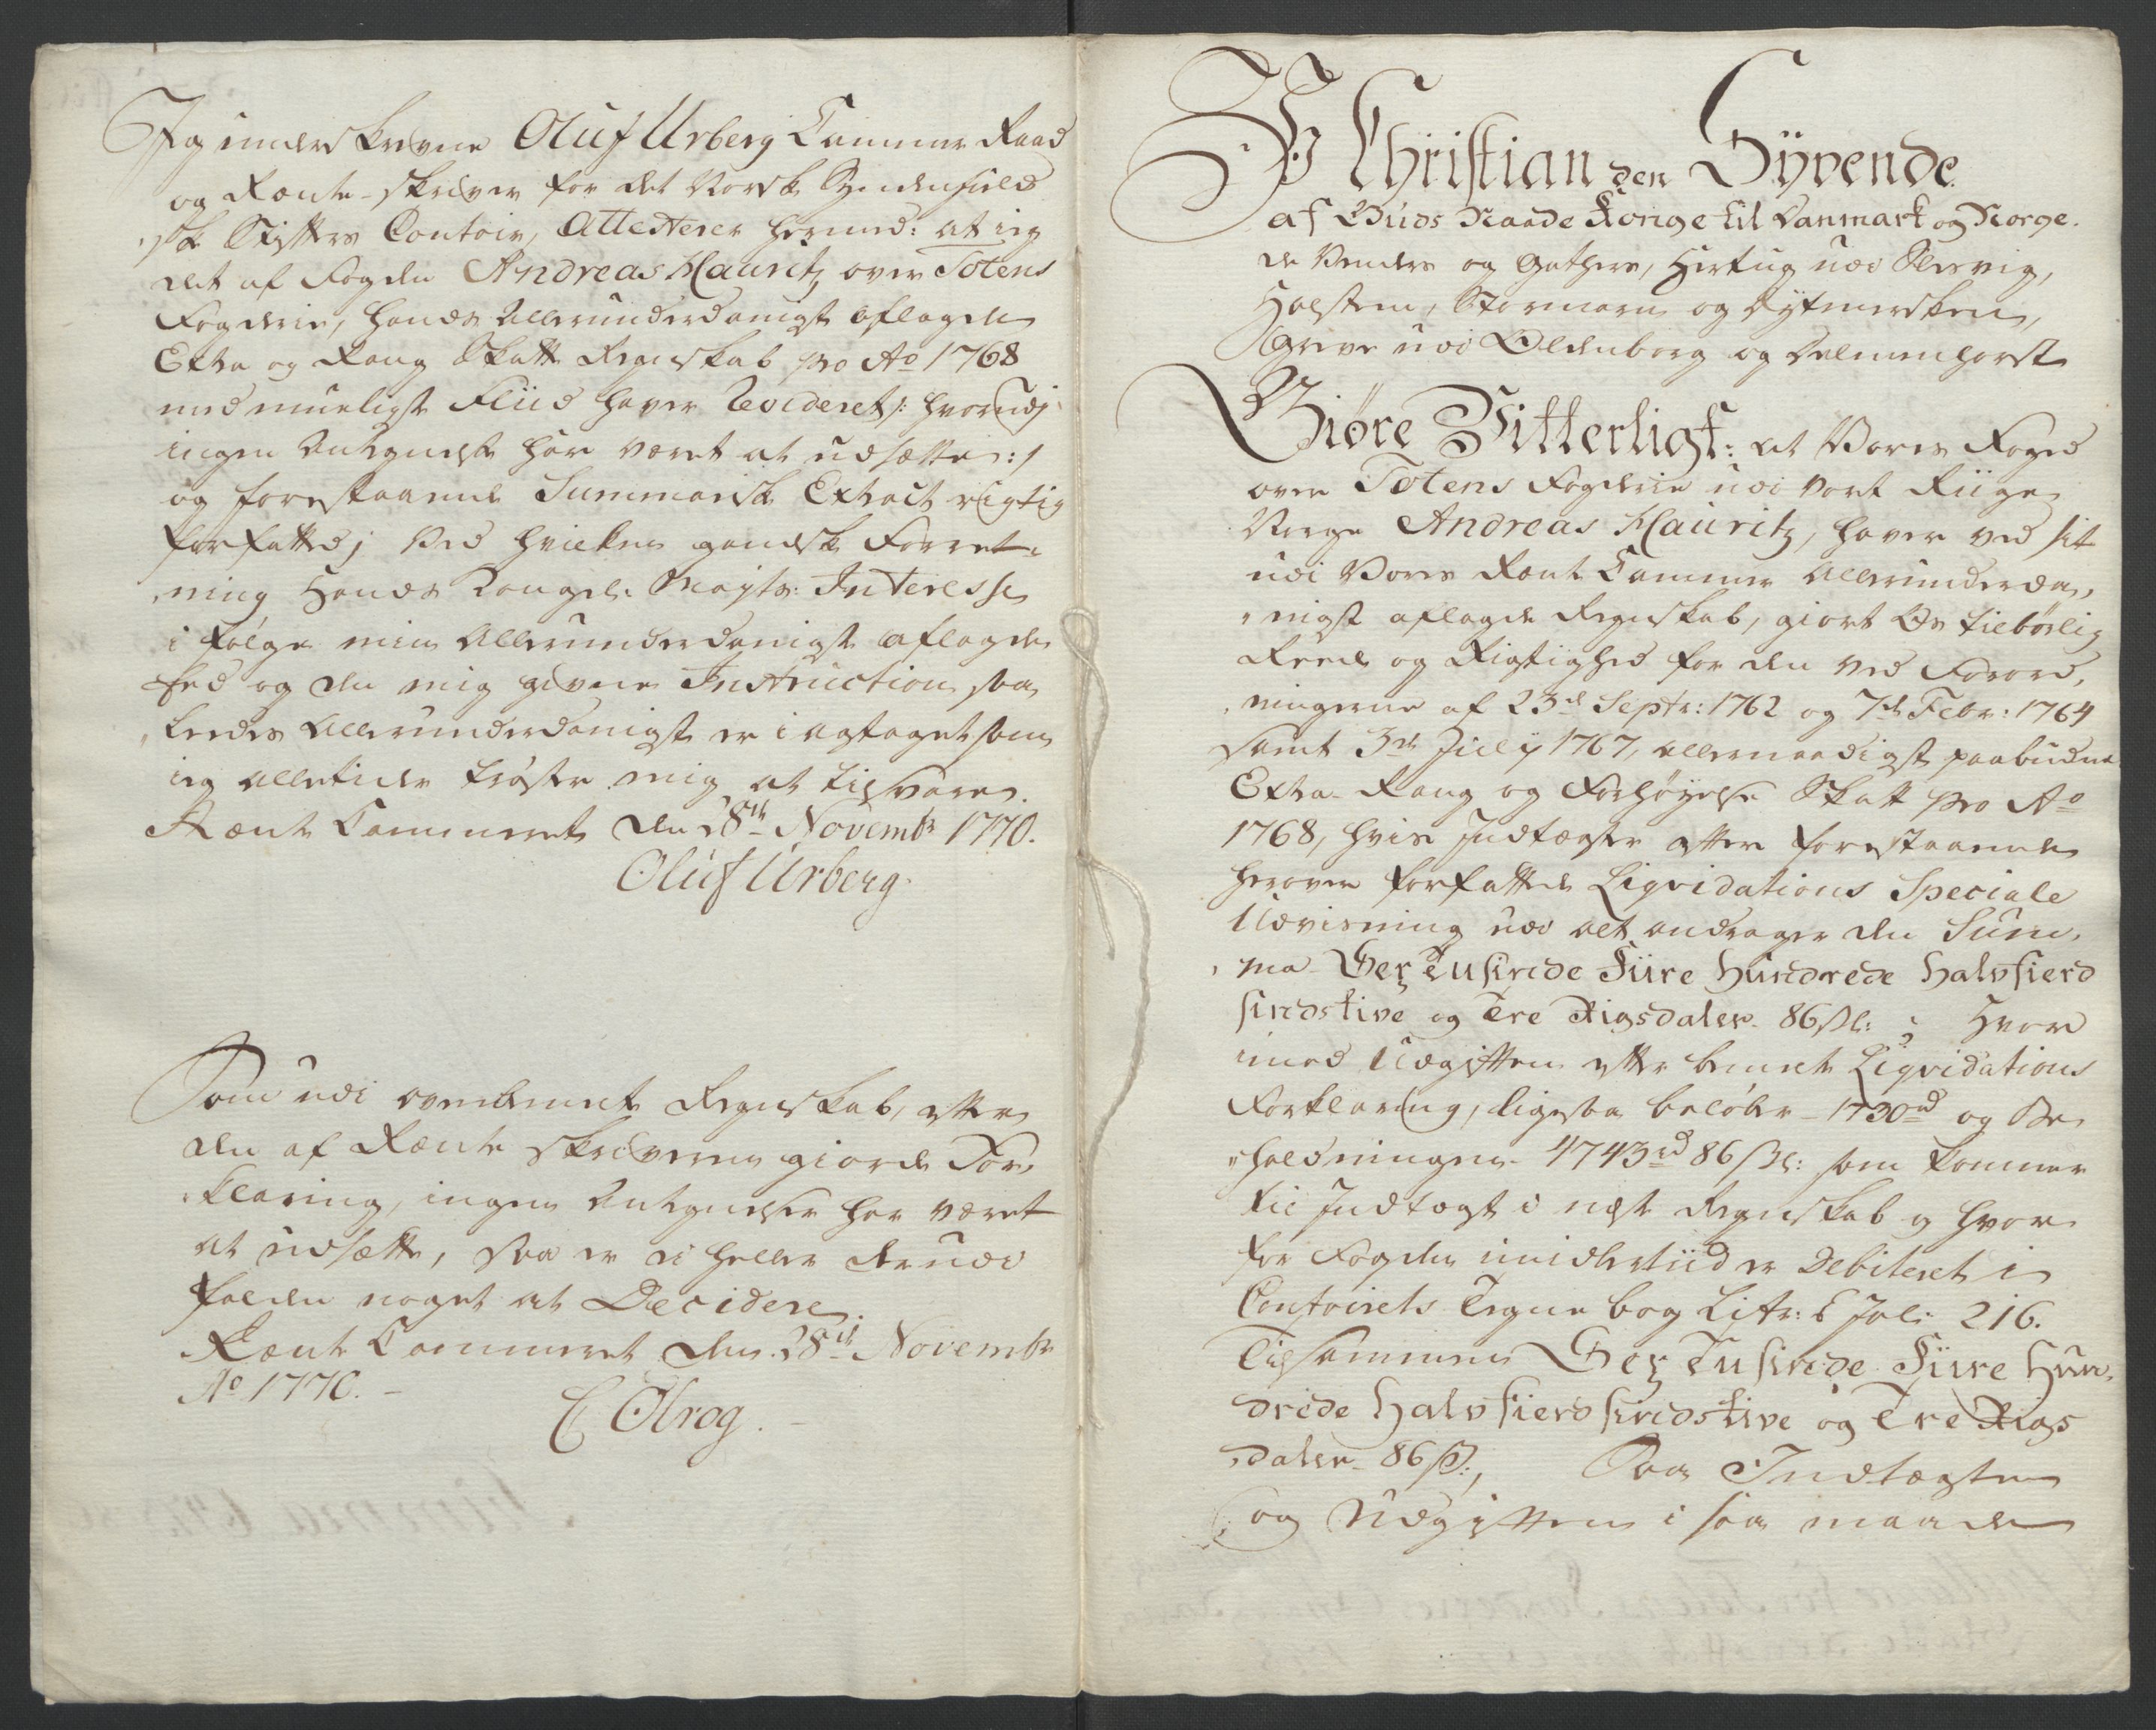 Jeg underskrevne Oluf Urberg Cammer Raad
og Rente-skriver for det Norsk Syndenfield
ske Stifters Contoir, Attesterer hermed: at ieg
det af Fogden Andreas Hauritz over Totens
Fogderie, Hands Allerunderdanigst aflagde
Extra og Rang Skatte Regnskab pro Ao 1768
med mueligst Fliid haver Revideret /: hvorudj
ingen Antegnelse har været at udsætte :/
og forestaaende Summarisk Extract rigtig
forfatted; Ved hvilken gandske Forret-
ning Hands Kongel. Mayts: Interesse
i følge min Allerunderdanigst aflagde
Eed og den mig givne Instruction saa
ledes Allerunderdanigst er i agtaget som
ieg alletider trøster mig at tilsvare.
Rente Cammeret den 28de Novembr 1770.
Oluf Urberg.
Som udi ovenbemelte Regnskab, efter
den af Rente skriveren giorde For-
klaring, ingen Antegnelser har været
at udsætte, saa er ei heller derudi
falden noget at Decidere.
Rente Cammeret den 28de Novembr
Ao 1770.
C Olrog.
Wi Christian den Syvende
af Guds Naade Konge til Danmark og Norge.
de Venders og Gothers, Hertug udi Slesvig,
Holsten, Stormarn og Dytmersken,
Greve udi Oldenborg og Delmenhorst
Giøre Vitterligt: at Vores Foged
over Totens Fogderie udi Vort Riige
Norge Andreas Hauritz, haver ved sit
udi Vores Rente Cammer Allerunderda-
nigst aflagde Regnskab, giort Os tilbørlig
Reede og Rigtighed for den ved Forord-
ningerne af 23de Septr: 1762 og 7de Febr: 1764
samt 3de July 1767, allernaadigst paabudne
Extra- Rang og Forhøyelse Skatt pro Ao
1768, hvis Indtægter efter forestaaende
herover forfattede Liqvidations Speciale
Udvisning udi alt andrager den Sum-
ma Sex Tusinde Fiire Hundrede Halvfierd
sindstive og Tre Rigsdaler 86 ßl: ; Hvor
imod Udgiften efter bemelte Liqvidations
Forklaring, ligesaa beløber 1730rd og Be
holdningen 4743rd 86 ßl: som kommer
til Indtægt i næste Regnskab og hvor
for Fogden imidlertiid er Debiteret i
Contoirets Tegne bog Litr: E fol: 216.
Tilsammen Sex Tusinde Fiire Hun-
drede Halvfierdsindstive og Tre Rigs
daler 86 ß:, Saa Indtægten
og Udgiften i saa maade